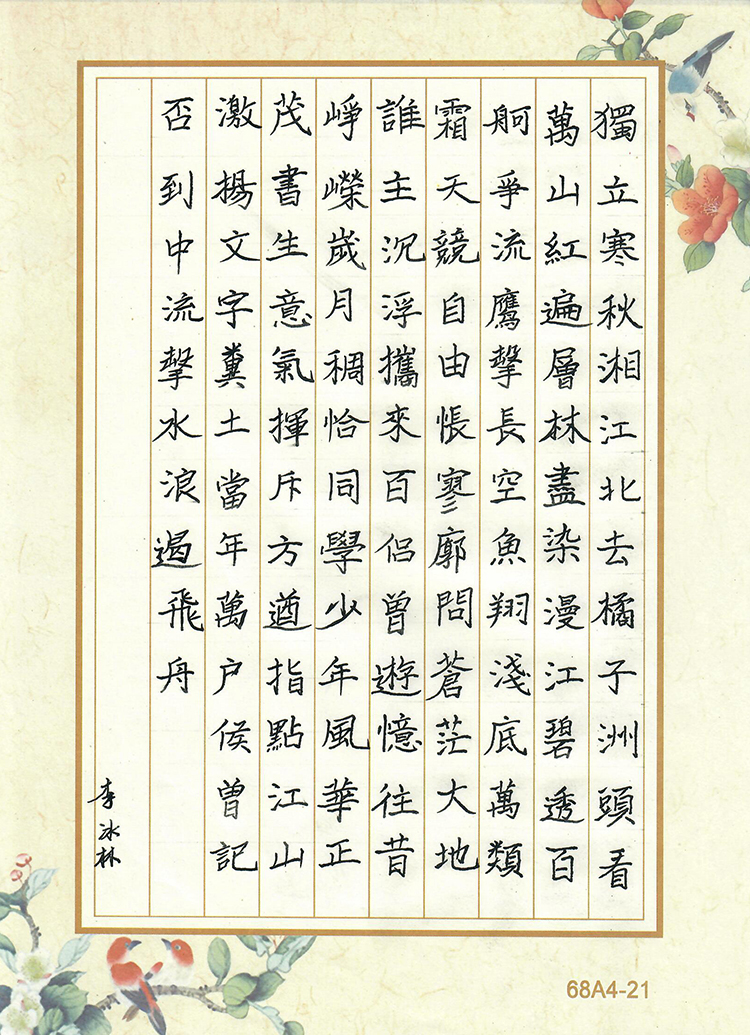 獨立寒秋湘江北去橘子洲頭看
萬山紅遍層林盡染漫江碧透百
舸爭流鷹擊長空魚翔淺底萬類
霜天競自由悵寥廓問蒼茫大地
誰主沉浮攜來百侣曾遊憶往昔
崢嶸歲月稠恰同學少年風華正
茂書生意氣揮斥方遒指點江山
激揚文字糞土當年萬户侯曾記
否到中流擊水浪遏飛舟
李冰林
68A4-21